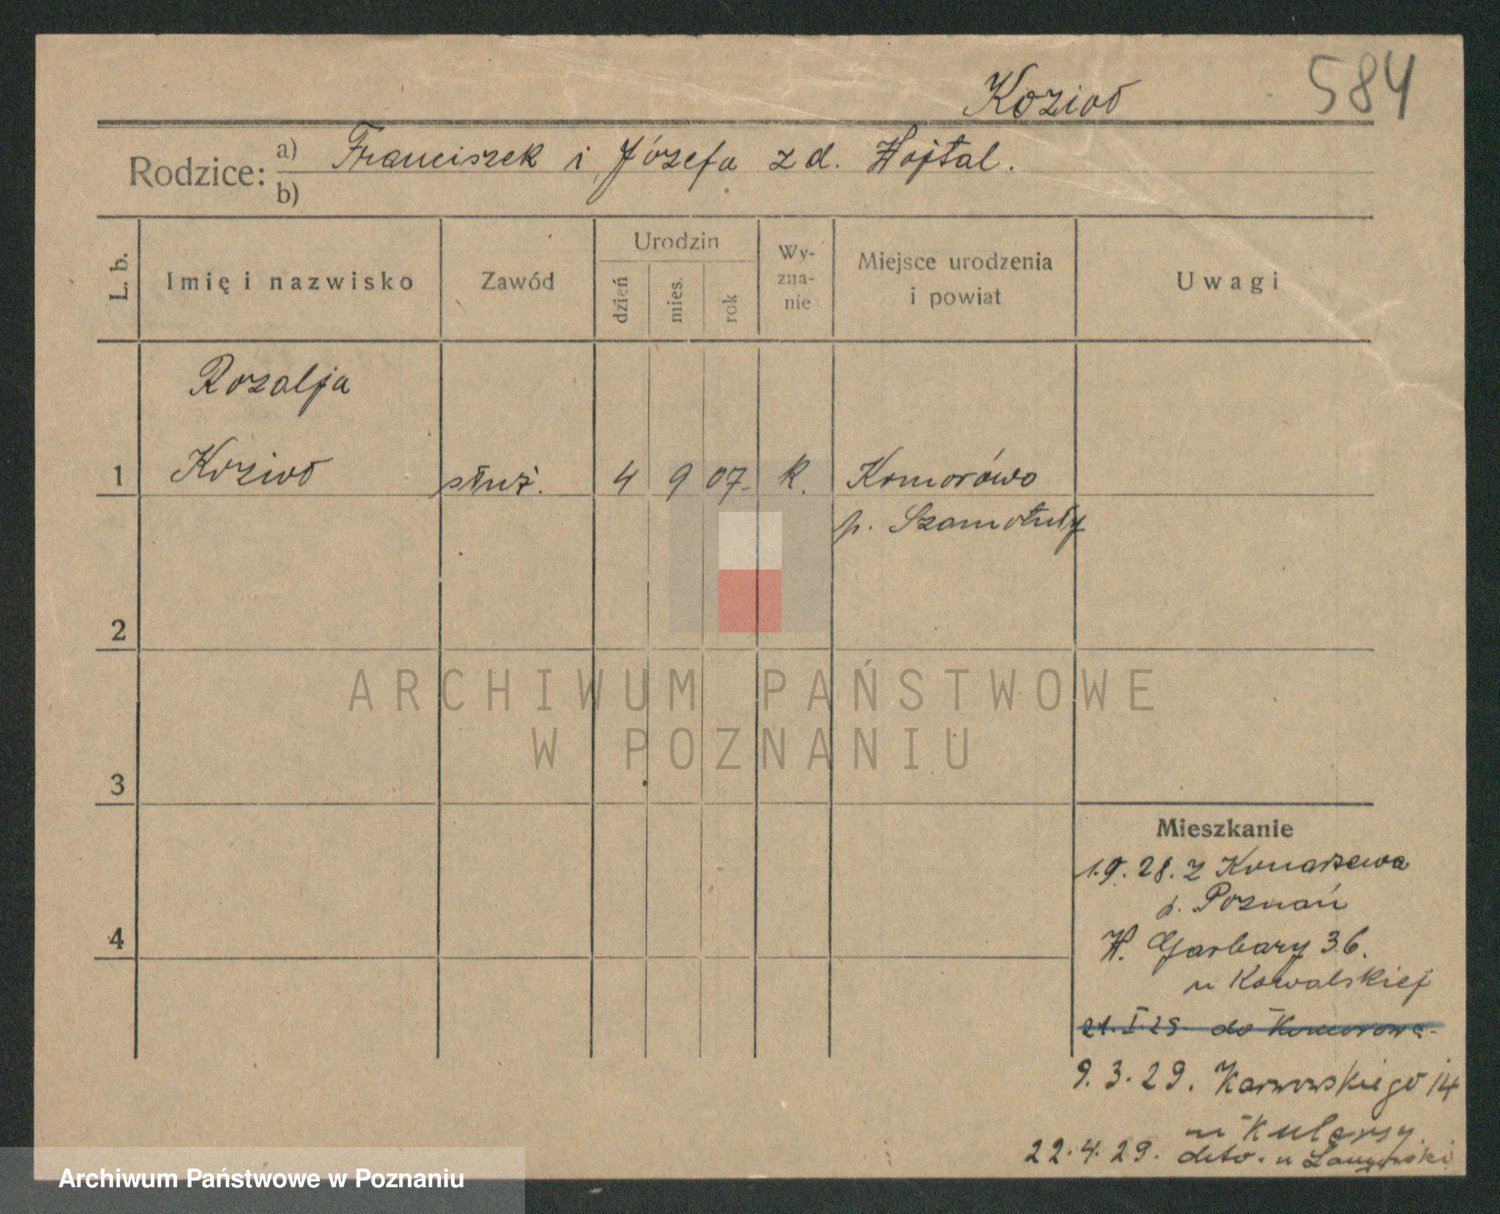 Kozioł 584
Rodzice: a) Franciszek i Józefa z d. Wojtal.
b)
L. b. Imię i nazwisko Zawód Urodzin dzień mies. rok Wy-zna-nie Miejsce urodzenia i powiat Uwagi
Rozalja
1 Kozioł służ. 4 9 07. k. Komorówo
p. Szamotuły
2
ARCHIWUM PAŃSTWOWE
W POZNANIU
3
Mieszkanie
1.9.28. z Konarzewa
p. Poznań
4
W. Garbary 36.
u Kowalskiej
21.I.29. do Komorowa
9.3.29. Karwowskiego 14
u
22.4.29. dito. u
Archiwum Państwowe w Poznaniu